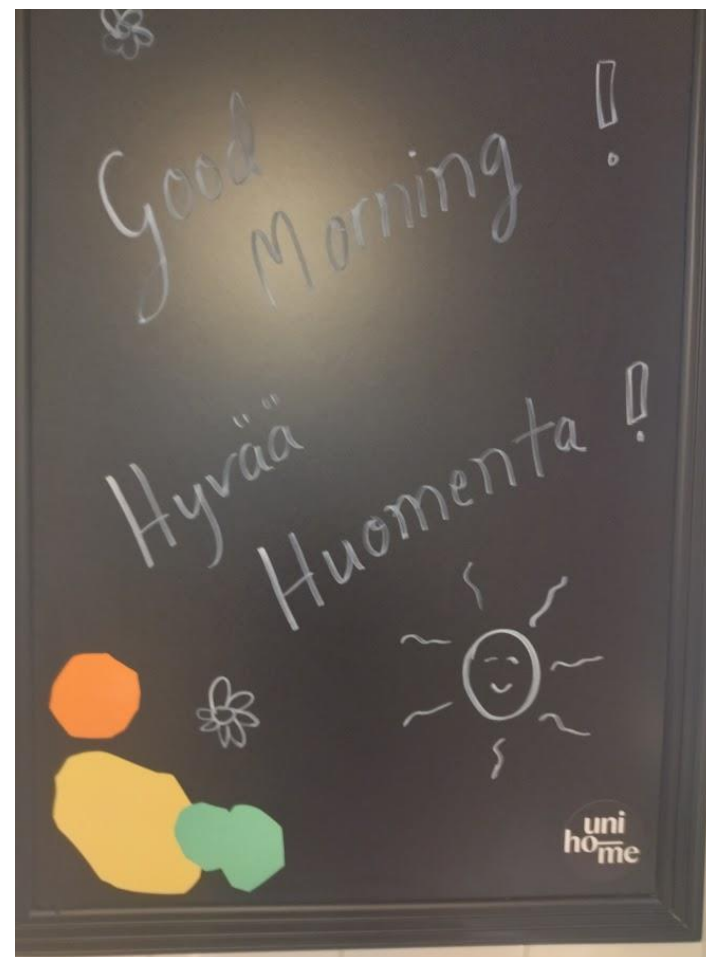 Good
Morning !
Hyvää
Huomenta !
uni
home